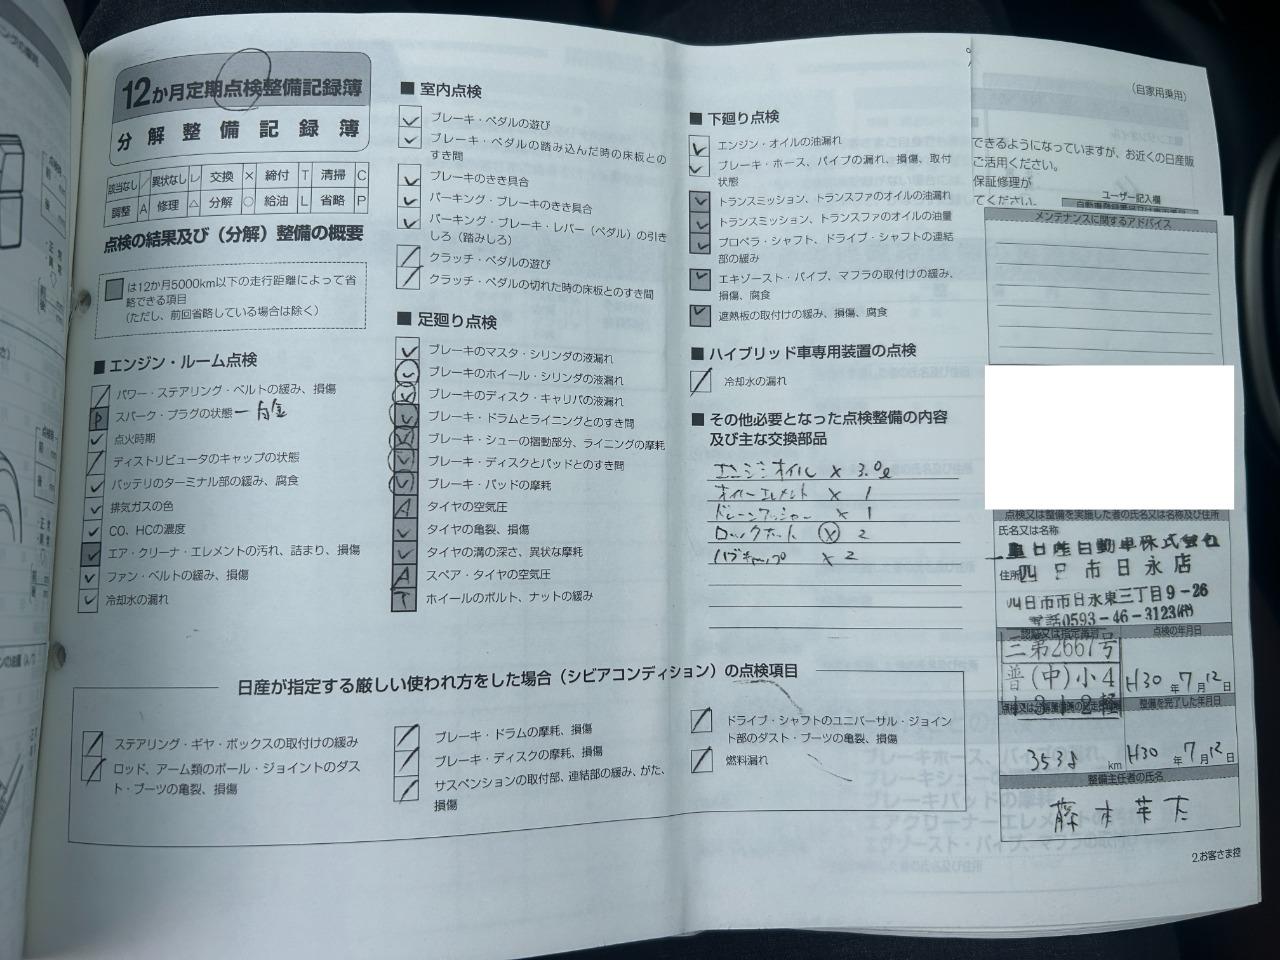 12か月定期点検整備記録簿
分解整備記録簿
該当なし ／ 異状なし レ 交換 × 締付 T 清掃 C
調整 A 修理 △ 分解 ○ 給油 L 省略 P
点検の結果及び(分解)整備の概要
は12か月5000km以下の走行距離によって省
略できる項目
(ただし、前回省略している場合は除く)
■ エンジン・ルーム点検
／ パワー・ステアリング・ベルトの緩み、損傷
P スパーク・プラグの状態 ー白金
レ 点火時期
／ ディストリビュータのキャップの状態
レ バッテリのターミナル部の緩み、腐食
レ 排気ガスの色
レ CO、HCの濃度
レ エア・クリーナ・エレメントの汚れ、詰まり、損傷
レ ファン・ベルトの緩み、損傷
レ 冷却水の漏れ
■ 室内点検
レ ブレーキ・ペダルの遊び
レ ブレーキ・ペダルの踏み込んだ時の床板との
すき間
レ ブレーキのきき具合
レ パーキング・ブレーキのきき具合
レ パーキング・ブレーキ・レバー(ペダル)の引き
しろ(踏みしろ)
／ クラッチ・ペダルの遊び
／ クラッチ・ペダルの切れた時の床板とのすき間
■ 足廻り点検
レ ブレーキのマスタ・シリンダの液漏れ
レ ブレーキのホイール・シリンダの液漏れ
レ ブレーキのディスク・キャリパの液漏れ
レ ブレーキ・ドラムとライニングとのすき間
レ ブレーキ・シューの摺動部分、ライニングの摩耗
レ ブレーキ・ディスクとパッドとのすき間
レ ブレーキ・パッドの摩耗
A タイヤの空気圧
レ タイヤの亀裂、損傷
レ タイヤの溝の深さ、異状な摩耗
A スペア・タイヤの空気圧
T ホイールのボルト、ナットの緩み
■ 下廻り点検
レ エンジン・オイルの油漏れ
レ ブレーキ・ホース、パイプの漏れ、損傷、取付
状態
レ トランスミッション、トランスファのオイルの油漏れ
レ トランスミッション、トランスファのオイルの油量
レ プロペラ・シャフト、ドライブ・シャフトの連結
部の緩み
レ エキゾースト・パイプ、マフラの取付けの緩み、
損傷、腐食
レ 遮熱板の取付けの緩み、損傷、腐食
■ ハイブリッド車専用装置の点検
／ 冷却水の漏れ
■ その他必要となった点検整備の内容
及び主な交換部品
エンジンオイル × 3.0ℓ
オイルエレメント × 1
ドレーンワッシャー × 1
ロックナット × 2
ハブキャップ × 2
日産が指定する厳しい使われ方をした場合(シビアコンディション)の点検項目
／ ステアリング・ギヤ・ボックスの取付けの緩み
／ ロッド、アーム類のボール・ジョイントのダス
ト・ブーツの亀裂、損傷
／ ブレーキ・ドラムの摩耗、損傷
／ ブレーキ・ディスクの摩耗、損傷
／ サスペンションの取付部、連結部の緩み、がた、
損傷
／ ドライブ・シャフトのユニバーサル・ジョイン
ト部のダスト・ブーツの亀裂、損傷
／ 燃料漏れ
(自家用乗用)
できるようになっていますが、お近くの日産販
ご活用ください。
保証修理が
てください。
ユーザー記入欄
メンテナンスに関するアドバイス
点検又は整備を実施した者の氏名又は名称及び住所
氏名又は名称
三重日産自動車株式会社
住所
四日市日永店
四日市市日永東三丁目9-26
電話0593-46-3123㈹
認証又は指定番号
点検の年月日
三第2667号
普(中)小4
1312軽
H30年7月12日
整備を完了した年月日
3538 km
H30年7月12日
整備主任者の氏名
2.お客さま控